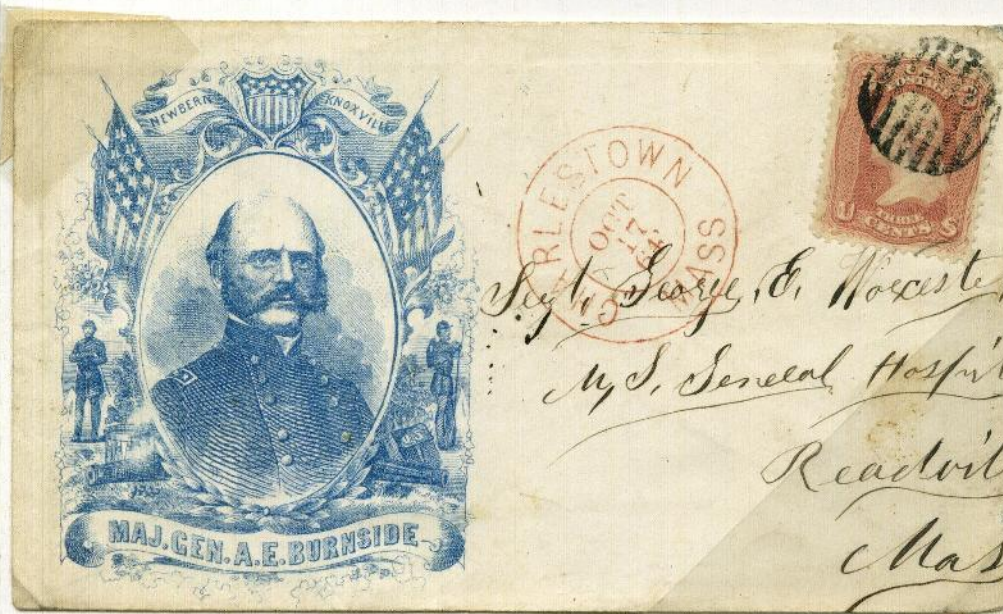 NEWBERN
KNOXVILLE
MAJ. GEN. A. E. BURNSIDE
CHARLESTOWN
MASS
OCT
17
64
U THREE CENTS S
Sergt. George, E. Worceste
U, S, General Hospit
Readvil
Mas